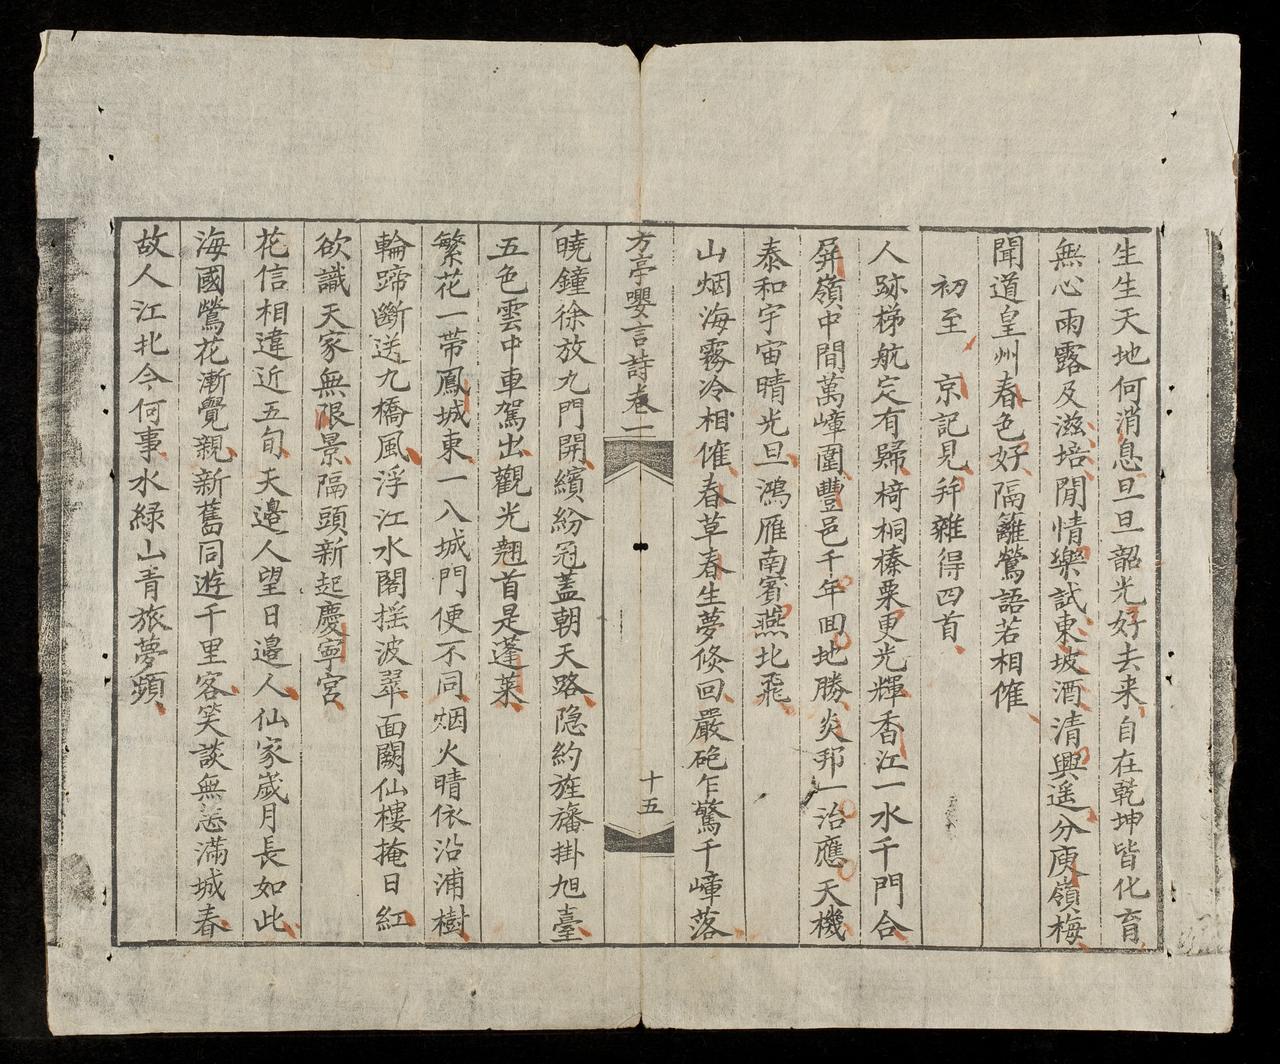 生生天地何消息旦旦韶光好去来自在乾坤皆化育
無心雨露及滋培閒情樂試東坡酒清興遥分庾嶺梅
聞道皇州春色好隔籬鶯語若相催
初至京記見并雜得四首
人跡梯航定有歸椅桐榛栗更光輝香江一水千門合
屏嶺中間萬嶂圍豐邑千年回地勝炎邦一治應天機
泰和宇宙晴光旦鴻雁南賓燕北飛
山烟海霧冷相催春草春生夢倏回嚴砲乍驚千嶂落
方亭嚶言詩卷一
十五
曉鐘徐放九門開繽紛冠蓋朝天路隐約旌旛掛旭臺
五色雲中車駕出觀光翹首是蓬萊
繁花一帶鳳城東一入城門便不同烟火晴依沿浦樹
輪蹄斷送九橋風浮江水閣揺波翠面闕仙樓掩日紅
欲識天家無限景隔頭新起慶寧宮
花信相違近五旬天邊人望日邊人仙家歲月長如此
海國鶯花漸覺親新舊同遊千里客笑談無恙滿城春
故人江北今何事水緑山青旅夢頻